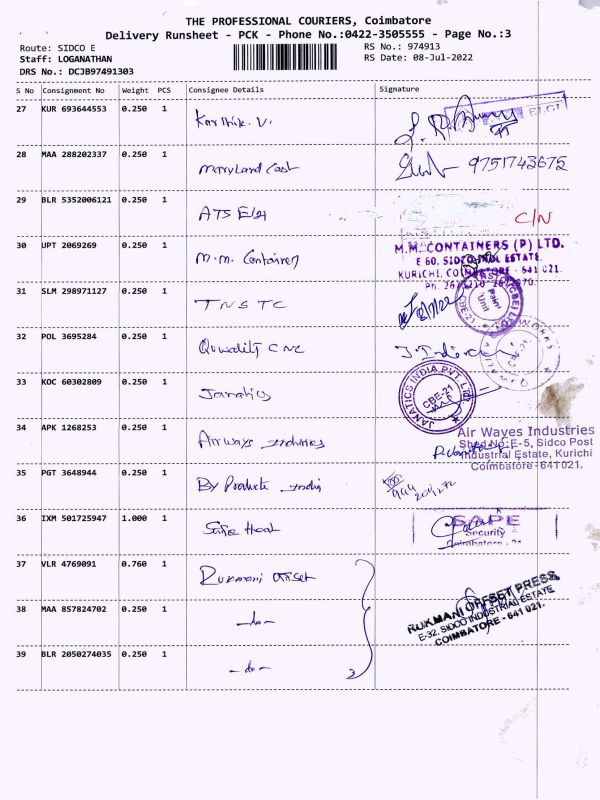 THE PROFESSIONAL COURIERS, Coimbatore
Delivery Runsheet - PCK - Phone No.:0422-3505555 - Page No.:3
Route: SIDCO E
RS No.: 974913
Staff: LOGANATHAN
RS Date: 08-Jul-2022
DRS No.: DCJB97491303
S No Consignment No Weight PCS Consignee Details Signature
27 KUR 693644553 0.250 1 Karthik. V.
28 MAA 288202337 0.250 1 Maryland Cast 9751743675
29 BLR 5352006121 0.250 1 ATS Elgi C/N
30 UPT 2069269 0.250 1 M.M. Container
M.M. CONTAINERS (P) LTD.
E 60, SIDCO INDL ESTATE.
KURICHI, COIMBATORE - 641 021.
31 SLM 298971127 0.250 1 TNSTC
32 POL 3695284 0.250 1 Quwality CNC
33 KOC 60302809 0.250 1 Janatics
JANATICS INDIA PVT. LTD.
CBE-21
34 APK 1268253 0.250 1 Airways Industries
Air Waves Industries
Shed No: E-5, Sidco Post
Industrial Estate, Kurichi
Coimbatore - 641021.
35 PGT 3648944 0.250 1 By Products India
36 IXM 501725947 1.000 1
SAPE
Security
Coimbatore - 21
37 VLR 4769091 0.760 1 Rukmani Offset
38 MAA 857824702 0.250 1 -do-
RUKMANI OFFSET PRESS
E-32, SIDCO INDUSTRIAL ESTATE
COIMBATORE - 641 021.
39 BLR 2050274035 0.250 1 -do-